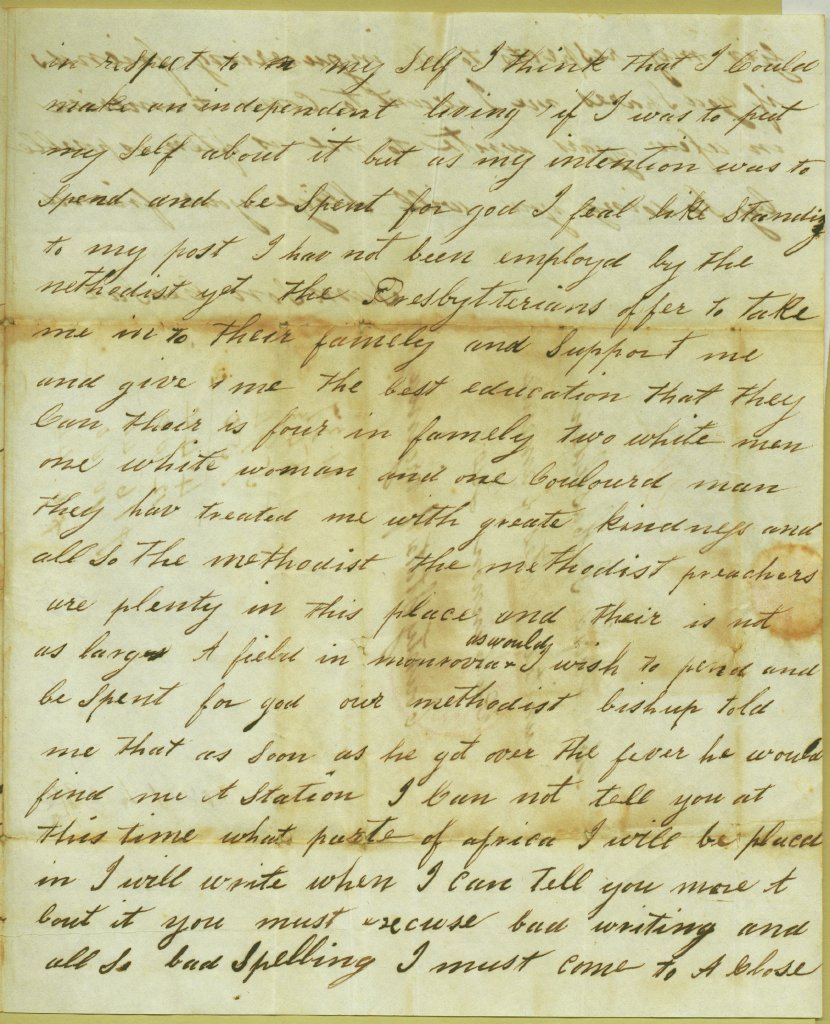 in respect to m my Self I think that I Could
make an independent living if I was to put
my Self about it but as my intention was to
Spend and be Spent for god I feal like Standing
to my post I hav not been employd by the
methodist yet the Presbytterians offer to take
me in to their famely and Support me
and give me the best education that they
Can their is four in famely two white men
one white woman and one Coulourd man
they hav treated me with greate kindness and
all So the methodist the methodist preachers
are plenty in this place and their is not
as large A field in monrovia as would I wish to pend and
be Spent for god our methodist bishup told
me that as Soon as he got over the fever he would
find me A Station I Can not tell you at
this time what parte of africa I will be placd
in I will write when I can tell you more A
bout it you must excuse bad writing and
all So bad Spelling I must come to A Close